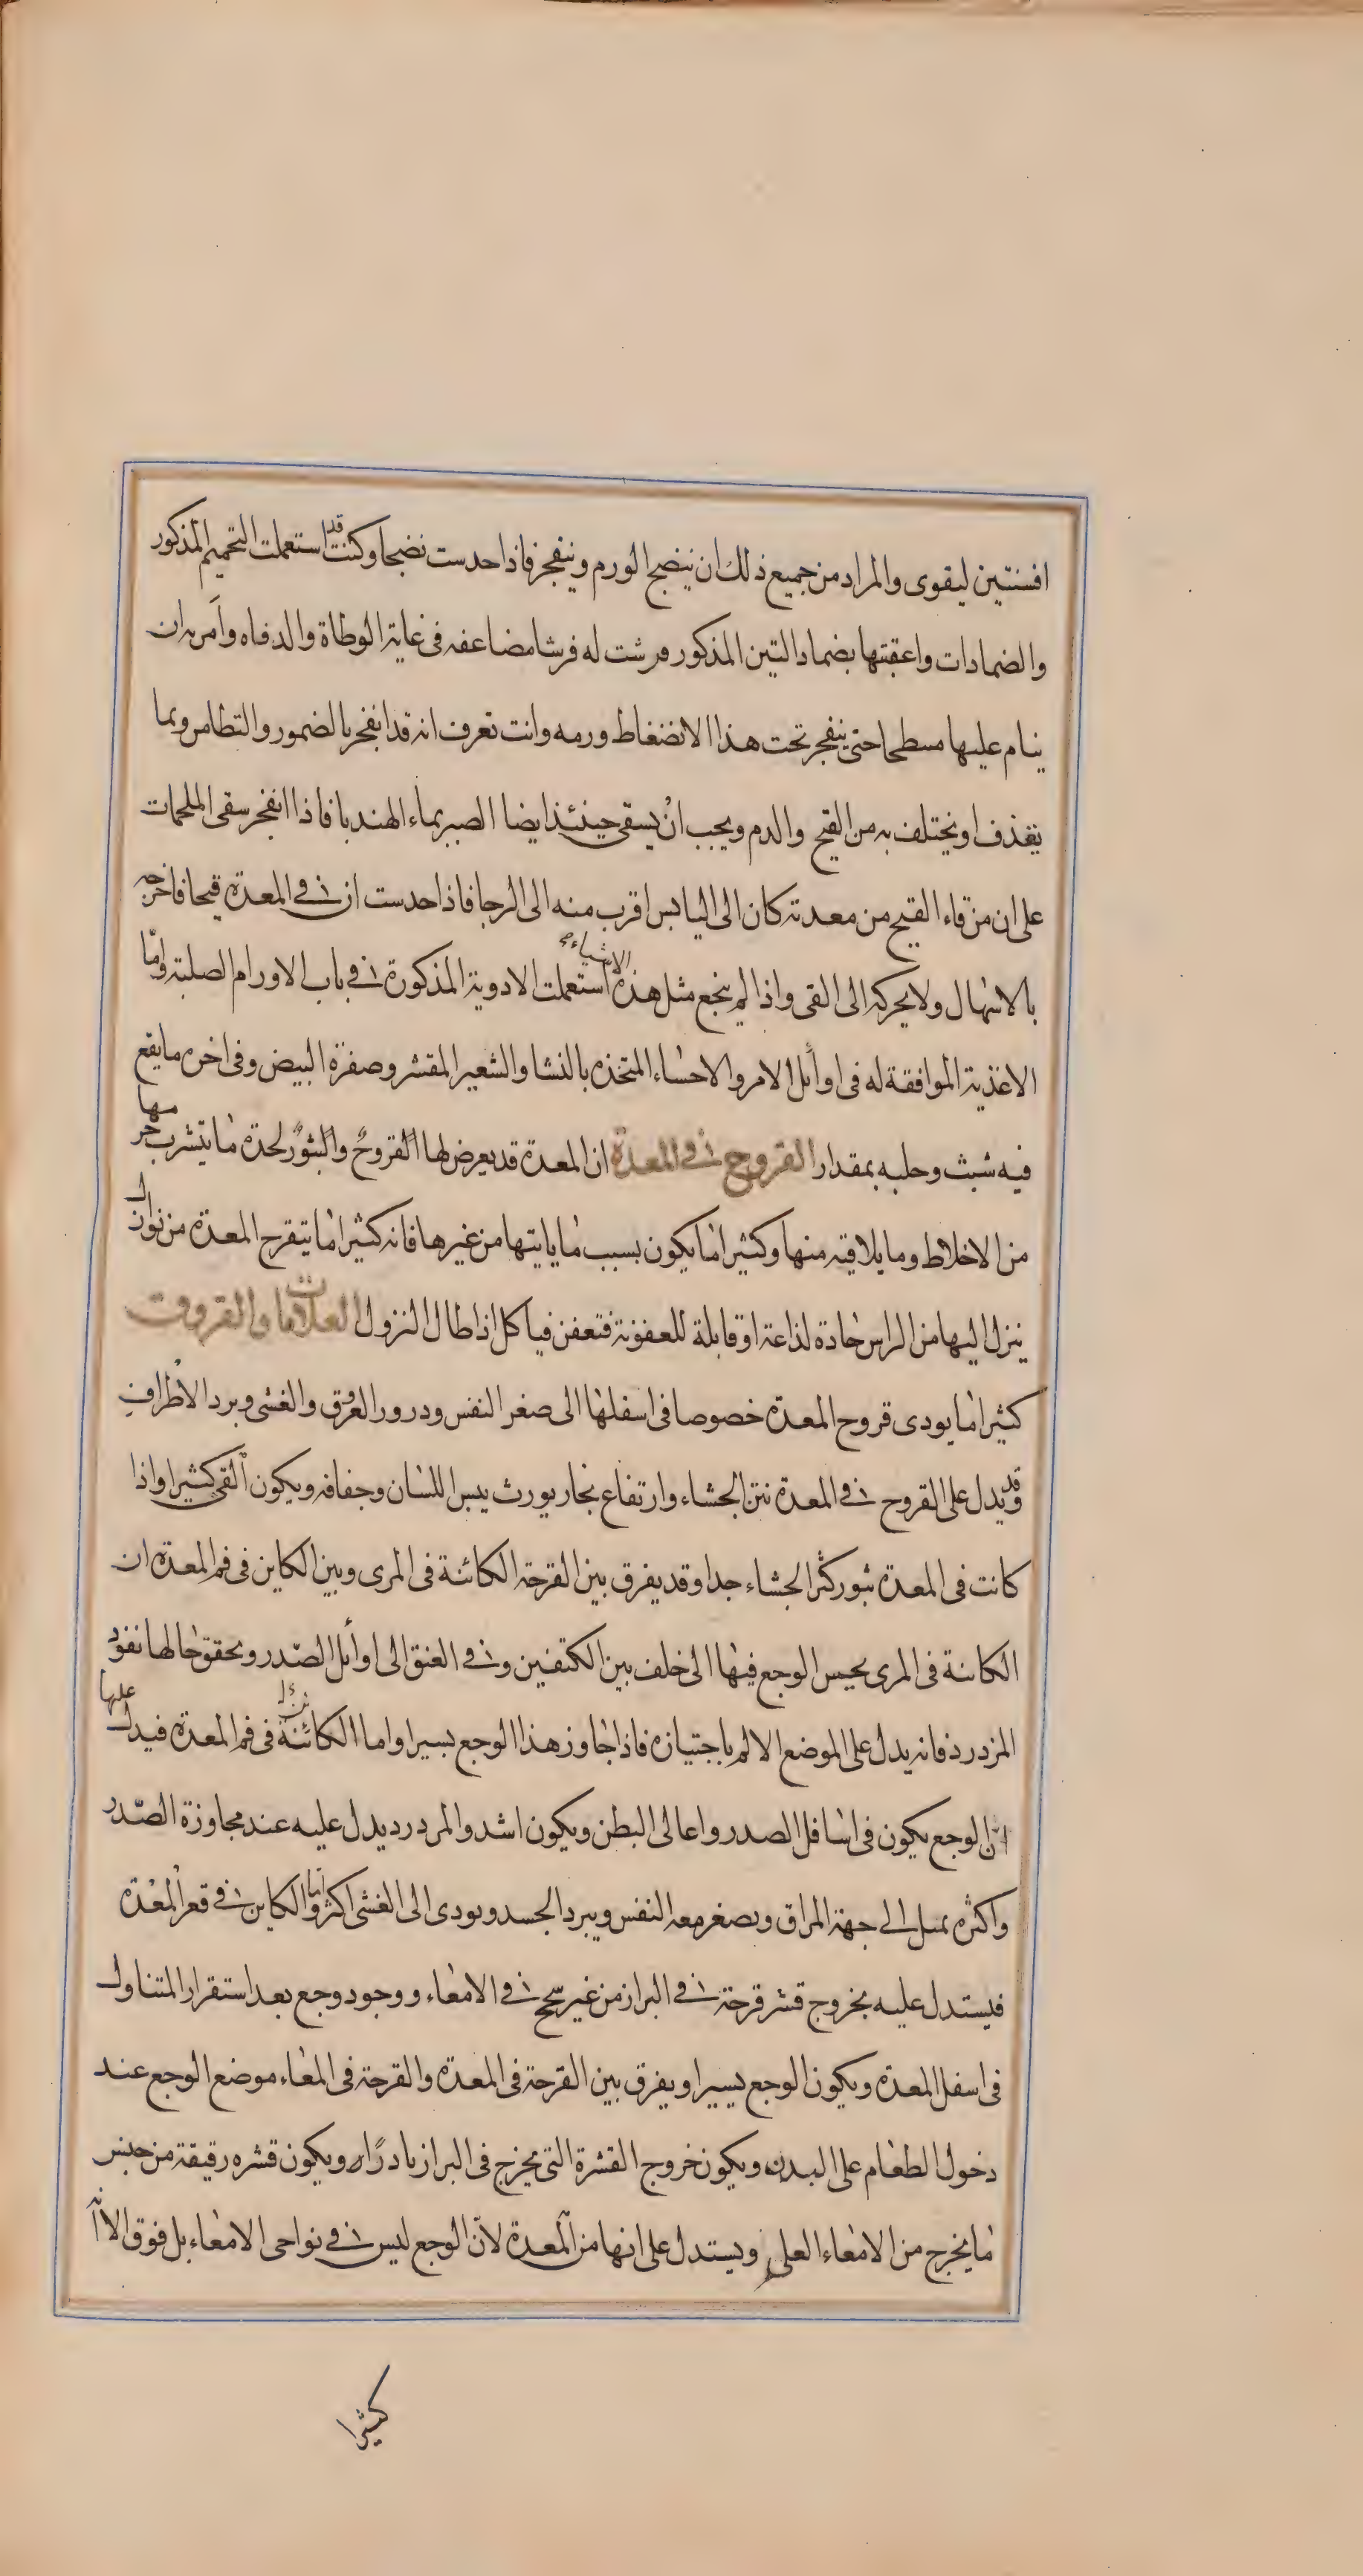 افسنتين ليقوى والمراد من جميع ذلك ان ينضج الورم وينفجر فاذا احدست نضجا وكنت قد استعملت التحميم المذكور
والضمادات واعقبتها بضماد التين المذكور فرشت له فرشا مضاعفه فى غاية الوطاة والدفاه وآمرته ان
ينام عليها مسطحا حتى ينفجر تحت هذا الانضغاط ورمه وانت تعرف انه قد انفجر بالضمور والتطامن وبما
يقذف او يختلف به من القيح والدم ويجب ان يسقى حينئذ ايضا الصبر بماء الهندبا فاذا انفجر سقى الملحمات
على ان من قاء القيح من معدته كان الى الياس اقرب منه الى الرجا فاذا حدست ان فى المعدة قيحا فاخرجه
بالاسهال ولا يحركه الى القى واذا لم ينجع مثل هذه الاشياء استعملت الادوية المذكورة فى باب الاورام الصلبة واما
الاغذية الموافقة له فى اوائل الامر والاحساء المتخذه بالنشا والشعير المقشر وصفرة البيض وفى اخره ما يقع
فيه شبث وحلبه بمقدار القروح فى المعدة ان المعدة قد يعرض لها القروح والبثور لحدة ما يتشرب جرمها
من الاخلاط وما يلاقيه منها وكثيرا ما يكون بسبب ما ياتيها من غيرها فانه كثيرا ما يتقرح المعدة من نوازل
ينزل اليها من الراس حادة لذاعة او قابلة للعفونة فتعفن فياكل اذا طال النزول العلامات والفروقت
كثيرا ما يودى قروح المعدة خصوصا فى اسفلها الى صغر النفس ودرور العرق والغشى وبرد الاطراف
وقد يدل على القروح فى المعدة نتن الجشاء وارتفاع بخار يورث يبس اللسان وجفافه ويكون القى كثيرا واذا
كانت فى المعدة بثور كثر الجشاء جدا وقد يفرق بين القرحة الكائنة فى المرى وبين الكاين فى فم المعدة ان
الكائنة فى المرى يحس الوجع فيها الى خلف بين الكتفين وفى العنق الى اوائل الصدر ويحقق حالها نفوذ
المزدرد فانه يدل على الموضع الالم باجتيازه فاذا جاوز هذا الوجع يسيرا واما الكائنة فى فم المعدة فيدل عليها
ان الوجع يكون فى اسافل الصدر واعالى البطن ويكون اشد والمردرد يدل عليه عند مجاوزة الصدر
واكثره يميل الى جهة المراق ويصغر معه النفس ويبرد الجسد ويودى الى الغشى اكثر واما الكاين فى قعر المعدة
فيستدل عليه بخروج قشر قرحة فى البراز من غير سحج فى الامعاء ووجود وجع بعد استقرار المتناول
فى اسفل المعدة ويكون الوجع يسيرا ويفرق بين القرحة فى المعدة والقرحة فى المعاء موضع الوجع عند
دخول الطعام على البدن ويكون خروج القشرة التى يخرج فى البراز نادرا ويكون قشره رقيقة من جنس
ما يخرج من الامعاء العلى ويستدل على انها من المعدة لان الوجع ليس فى نواحى الامعاء بل فوق الا ان
كثيرا